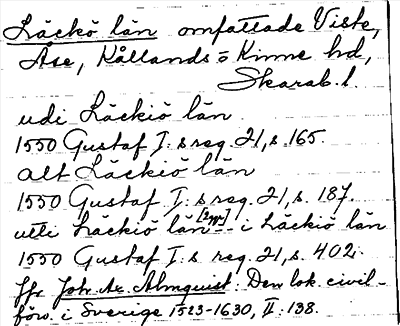 Läckö län omfattade Viste,
Åse, Kållands o Kinne hd,
Skarab. l.
udi Läckiö län
1550 Gustaf I:s reg. 21, s. 165.
alt Läckiö län
1550 Gustaf I:s reg. 21, s. 187.
utti Läckiö län -- i Läckiö län
1550 Gustaf I:s reg. 21, s. 402.
Jfr Joh. Ax. Almquist. Den lok. civil-
förv. i Sverige 1523-1630, II: 138.